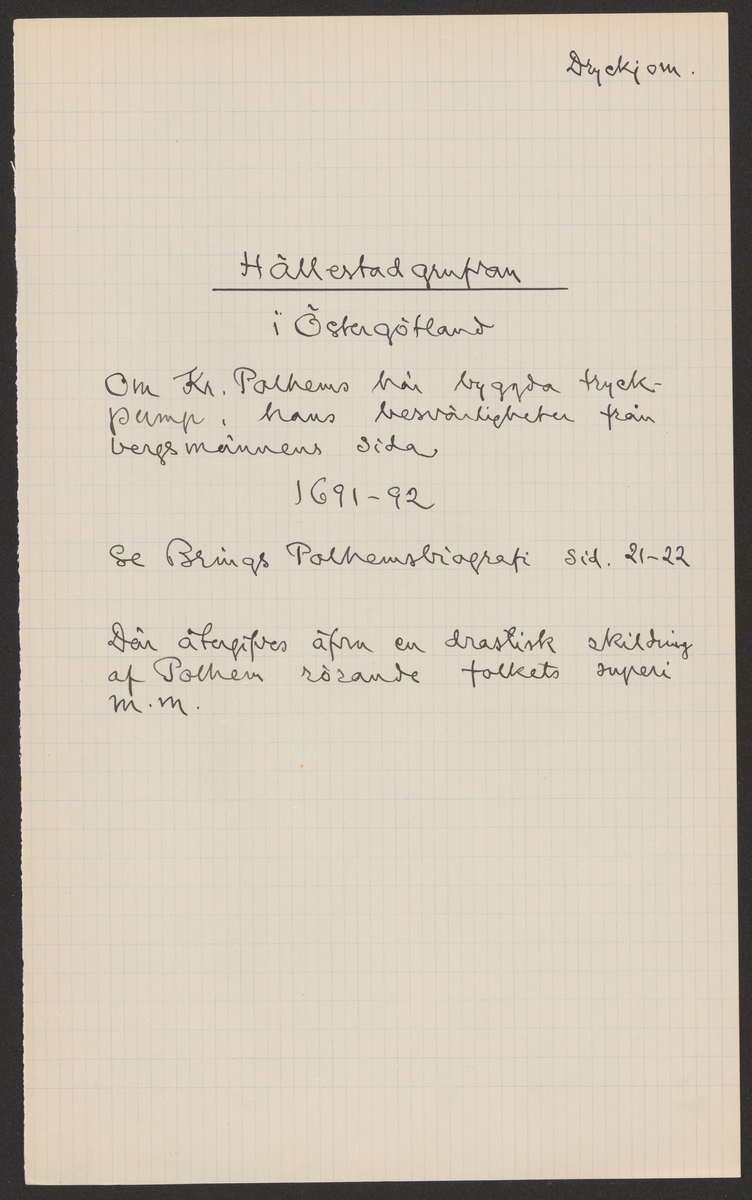 Dryckjom.
Hällestadgrufvan
i Östergötland
Om Kr. Polhems här byggda tryck-
pump, hans besvärligheter från
bergsmännens sida
1691-92
Se Brings Polhemsbiografi sid. 21-22
Där återgifves äfvn en drastisk skildring
af Polhem rörande folkets superi
m.m.